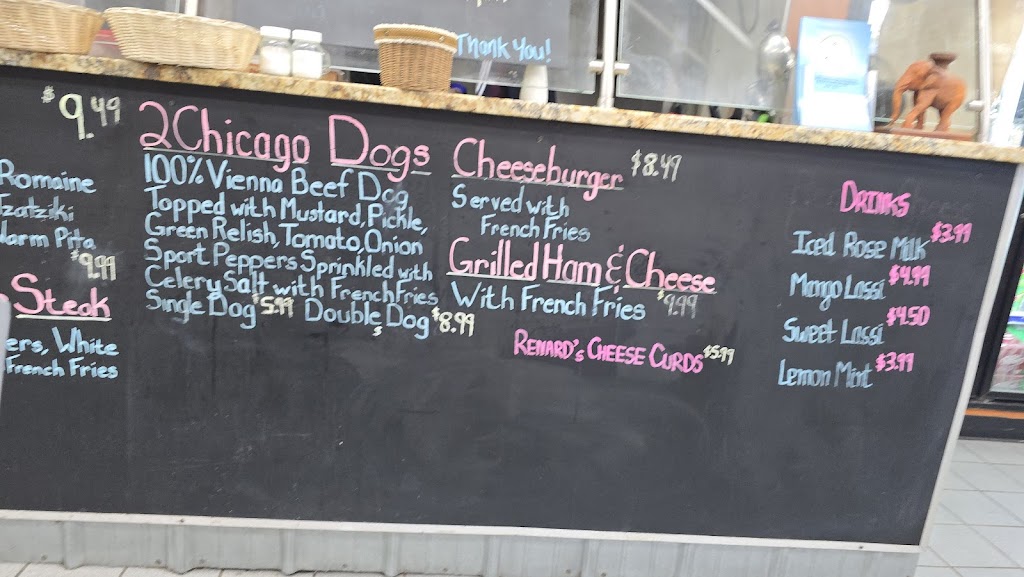 Thank You!
$9.49
Romaine
Tzatziki
Warm Pita
$9.99
Steak
ers, White
French Fries
2 Chicago Dogs
100% Vienna Beef Dog
Topped with Mustard, Pickle,
Green Relish, Tomato, Onion
Sport Peppers Sprinkled with
Celery Salt with French Fries
Single Dog $5.99 Double Dog $8.99
Cheeseburger $8.49
Served with
French Fries
Grilled Ham & Cheese
With French Fries $9.99
Renard's Cheese Curds $5.99
Drinks
Iced Rose Milk $3.99
Mango Lassi $4.99
Sweet Lassi $4.50
Lemon Mint $3.99